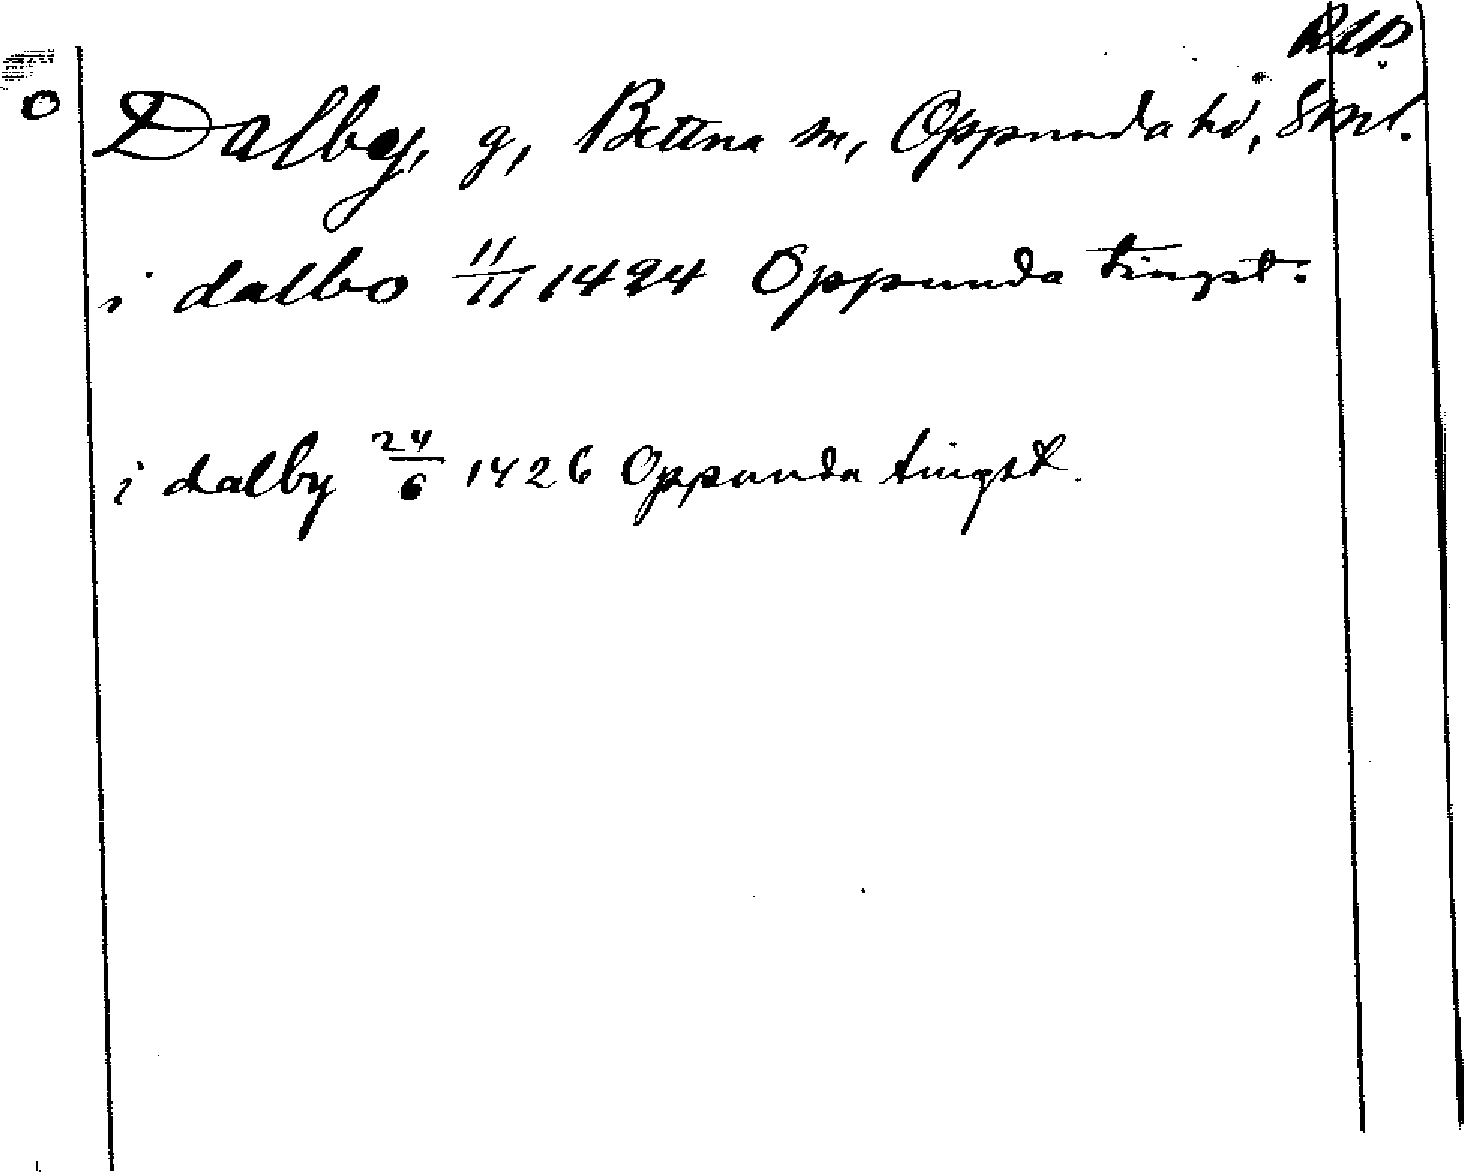 Dalby, g, Bettna sn, Oppunda hd, Sml.
i dalbo 11/11 1424 Oppunda tingst:
i dalby 24/6 1426 Oppunda tingst.